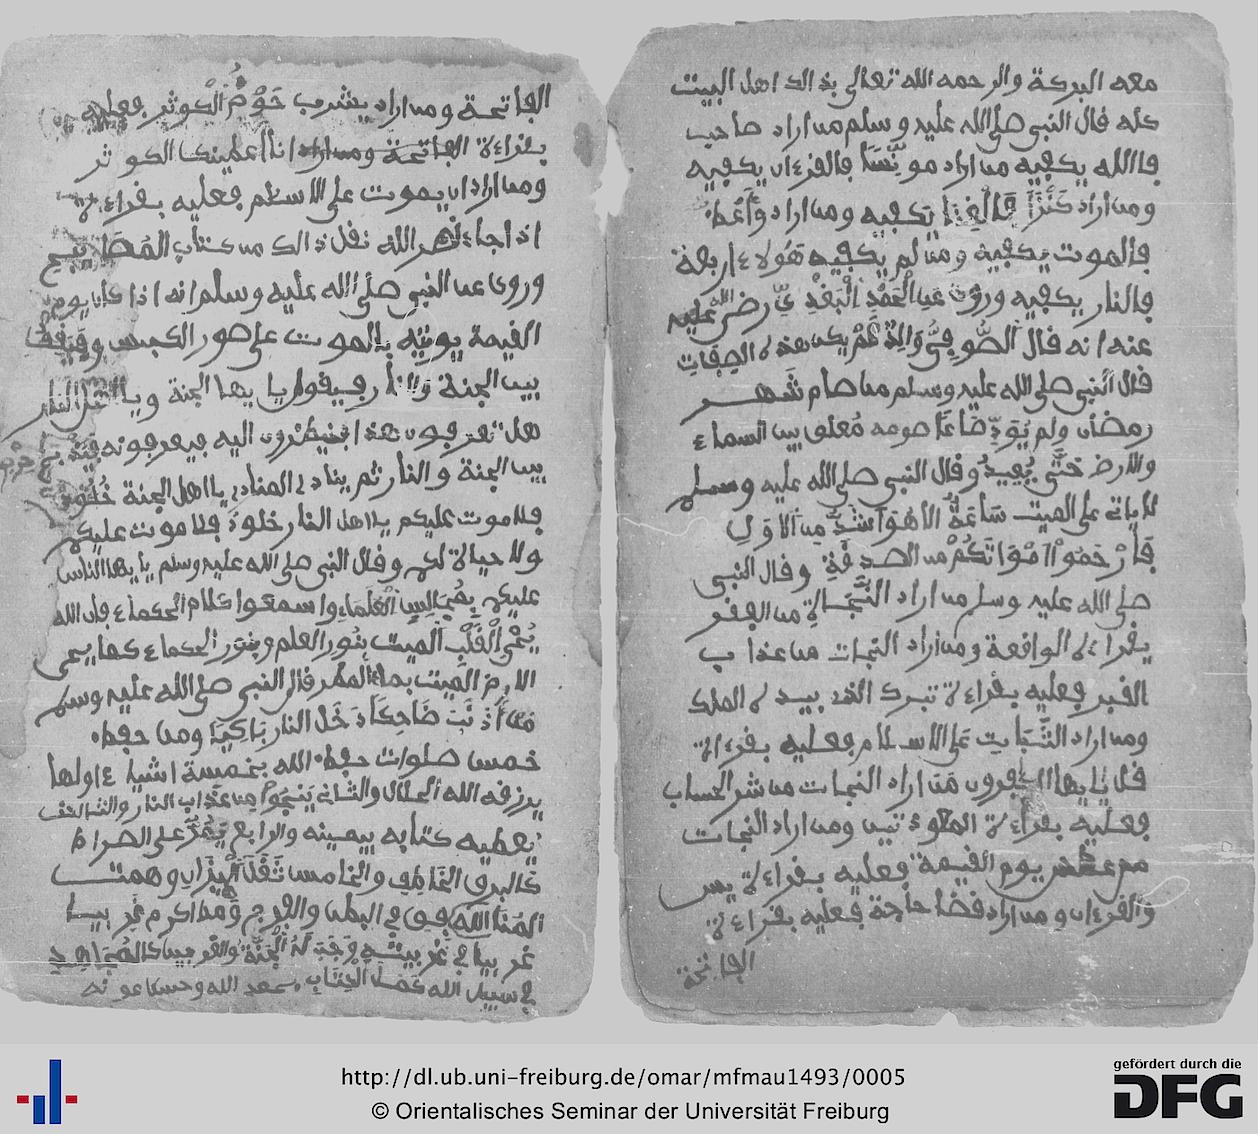 معه البركة والرحمه الله تعالى بذالك اهل البيت
كله قال النبي صلى الله عليه وسلم من اراد صاحب
فاالله يكفيه من اراد مونسا فالقرءان يكفيه
ومن اراد كنزا يكفيه ومن اراد
فالموت يكفيه ومن لم يكفيه هولاء اربعة
فالنار يكفيه وروى عن البغدي رضى الله عليه
عنه انه قال الصوفي يكن هذه الصفات
قال النبي صلى الله عليه وسلم من صام شهر
رمضان ولم يود صاعا صومه معلق بين السماء
والارض حتى وقال النبي صلى الله عليه وسلم
لا ياتى على الميت ساعة اشد من الاول
فارحموا امواتكم من الصدقة وقال النبي
صلى الله عليه وسلم من اراد النجاة من الفقر
يقراءة الواقعة ومن اراد النجات من عذاب
القبر فعليه بقراءة تبرك الذي بيده الملك
ومن اراد الثبات على الاسلام فعليه بقراءة
قل يايها الكفرون من اراد النجات من شر الحساب
فعليه بقراءة ومن اراد النجات
من يوم القيمة فعليه بقراءة يس
والقرءان ومن اراد قضا حاجة فعليه بقراءة
الفاتحة
الفاتحة ومن اراد يشرب حوض الكوثر فعليه
بقراءة انا اعطينك الكوثر
ومن اراد ان يموت على الاسلم فعليه بقراءة
اذا جاء نصر الله نقل ذالك من كتاب المصابيح
وروى عن النبي صلى الله عليه وسلم انه اذا كان يوم
القيمة يوتيه بالموت على صور الكبش
بين الجنة والنار فيقول يا يها الجنة ويا النار
هل تعرفون هذا فينظرون اليه فيعرفونه
بين الجنة والنار ثم ينادى المنادى يا اهل الجنة خلود
فلا موت عليكم يا اهل النار خلود فلا موت عليكم
ولا حياة لكم وقال النبي صلى الله عليه وسلم يا يها الناس
عليكم العلماء واسمعوا كلام الحكماء فان الله
يحي القلب الميت بنور العلم ونور الحكماء كما يحي
الارض الميت بماء المطر قال النبي صلى الله عليه وسلم
من ضاحكا دخل النار باكيا ومن حفظ
خمس صلوات حفظه الله بخمسة اشياء اولها
يرزقه الله الحلال والثاني ينجوا من عذاب النار والثالث
يعطيه كتابه بيمينه والرابع يمر على الصراط
كالبرق الخاطف والخامس ثقل الميزان وهمت
البطن والفرج ومن اكرم غريبا
غريبا في بيته وجبت له الجنة
في سبيل الله كمل الكتاب بحمد الله وحسن عونه
http://dl.ub.uni-freiburg.de/omar/mfmau1493/0005
© Orientalisches Seminar der Universität Freiburg
gefördert durch die
DFG